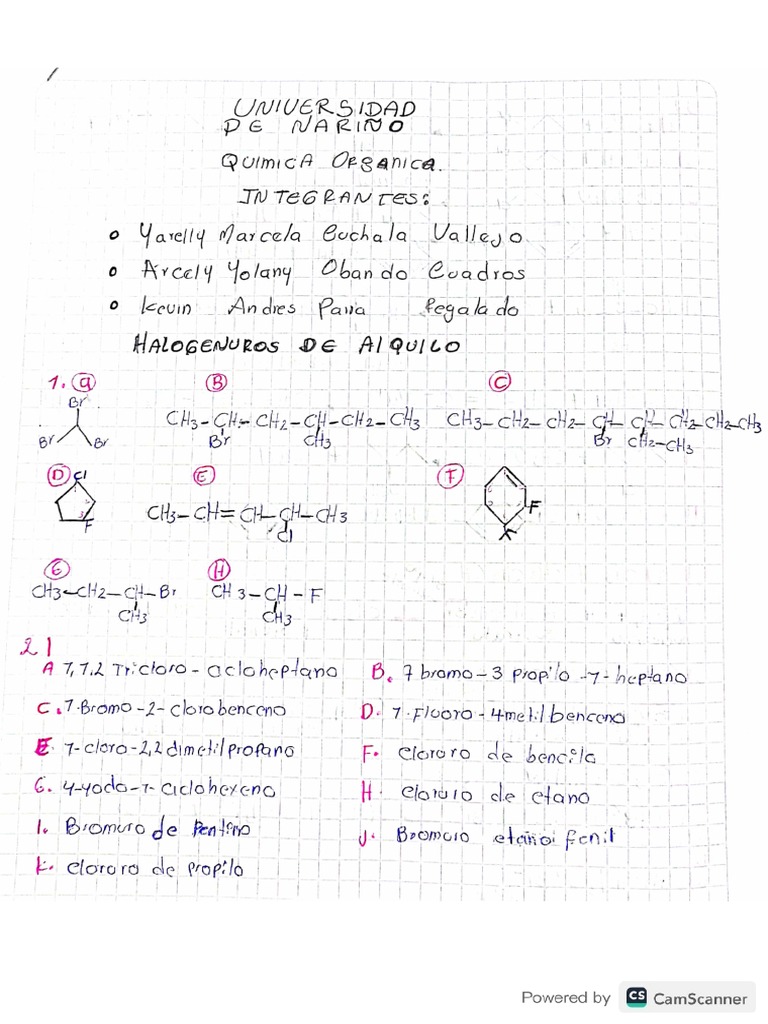 UNIVERSIDAD
DE NARIÑO
QUIMICA ORGANICA.
INTEGRANTES:
o Yarelly Marcela Cuchala Vallejo
o Arcely Yolany Obando Cuadros
o Kevin Andres Parra Regalado
HALOGENUROS DE AlQUILO
1. a B C
Br Br Br
CH3-CH-CH2-CH-CH2-CH3
Br CH3
CH3-CH2-CH2-CH-CH-CH2-CH2-CH3
Br CH2-CH3
D E F
Cl 3 F
CH3-CH=CH-CH-CH3
Cl
F
G H
CH3-CH2-CH-Br CH3-CH-F
CH3 CH3
2|
A 7,7,2 Tricloro-cicloheptano B. 7 bromo-3 propilo-7-heptano
C. 7-Bromo-2-clorobenceno D. 7-Fluoro-4metilbenceno
E. 7-cloro-2,2 dimetilpropano F. Cloruro de bencilo
G. 4-yodo-1-ciclohexeno H. cloruro de etano
I. Bromuro de Penteno J. Bromuro etano fenil
K. cloruro de propilo
Powered by CS CamScanner